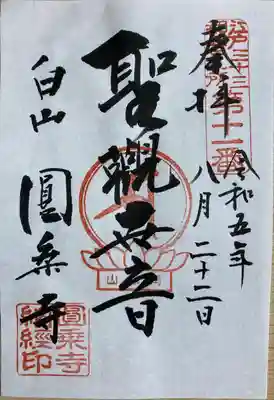 第十一番
奉拝
令和五年
八月二十二日
聖觀世音
白山
圓乗寺
圓乗寺
納經印